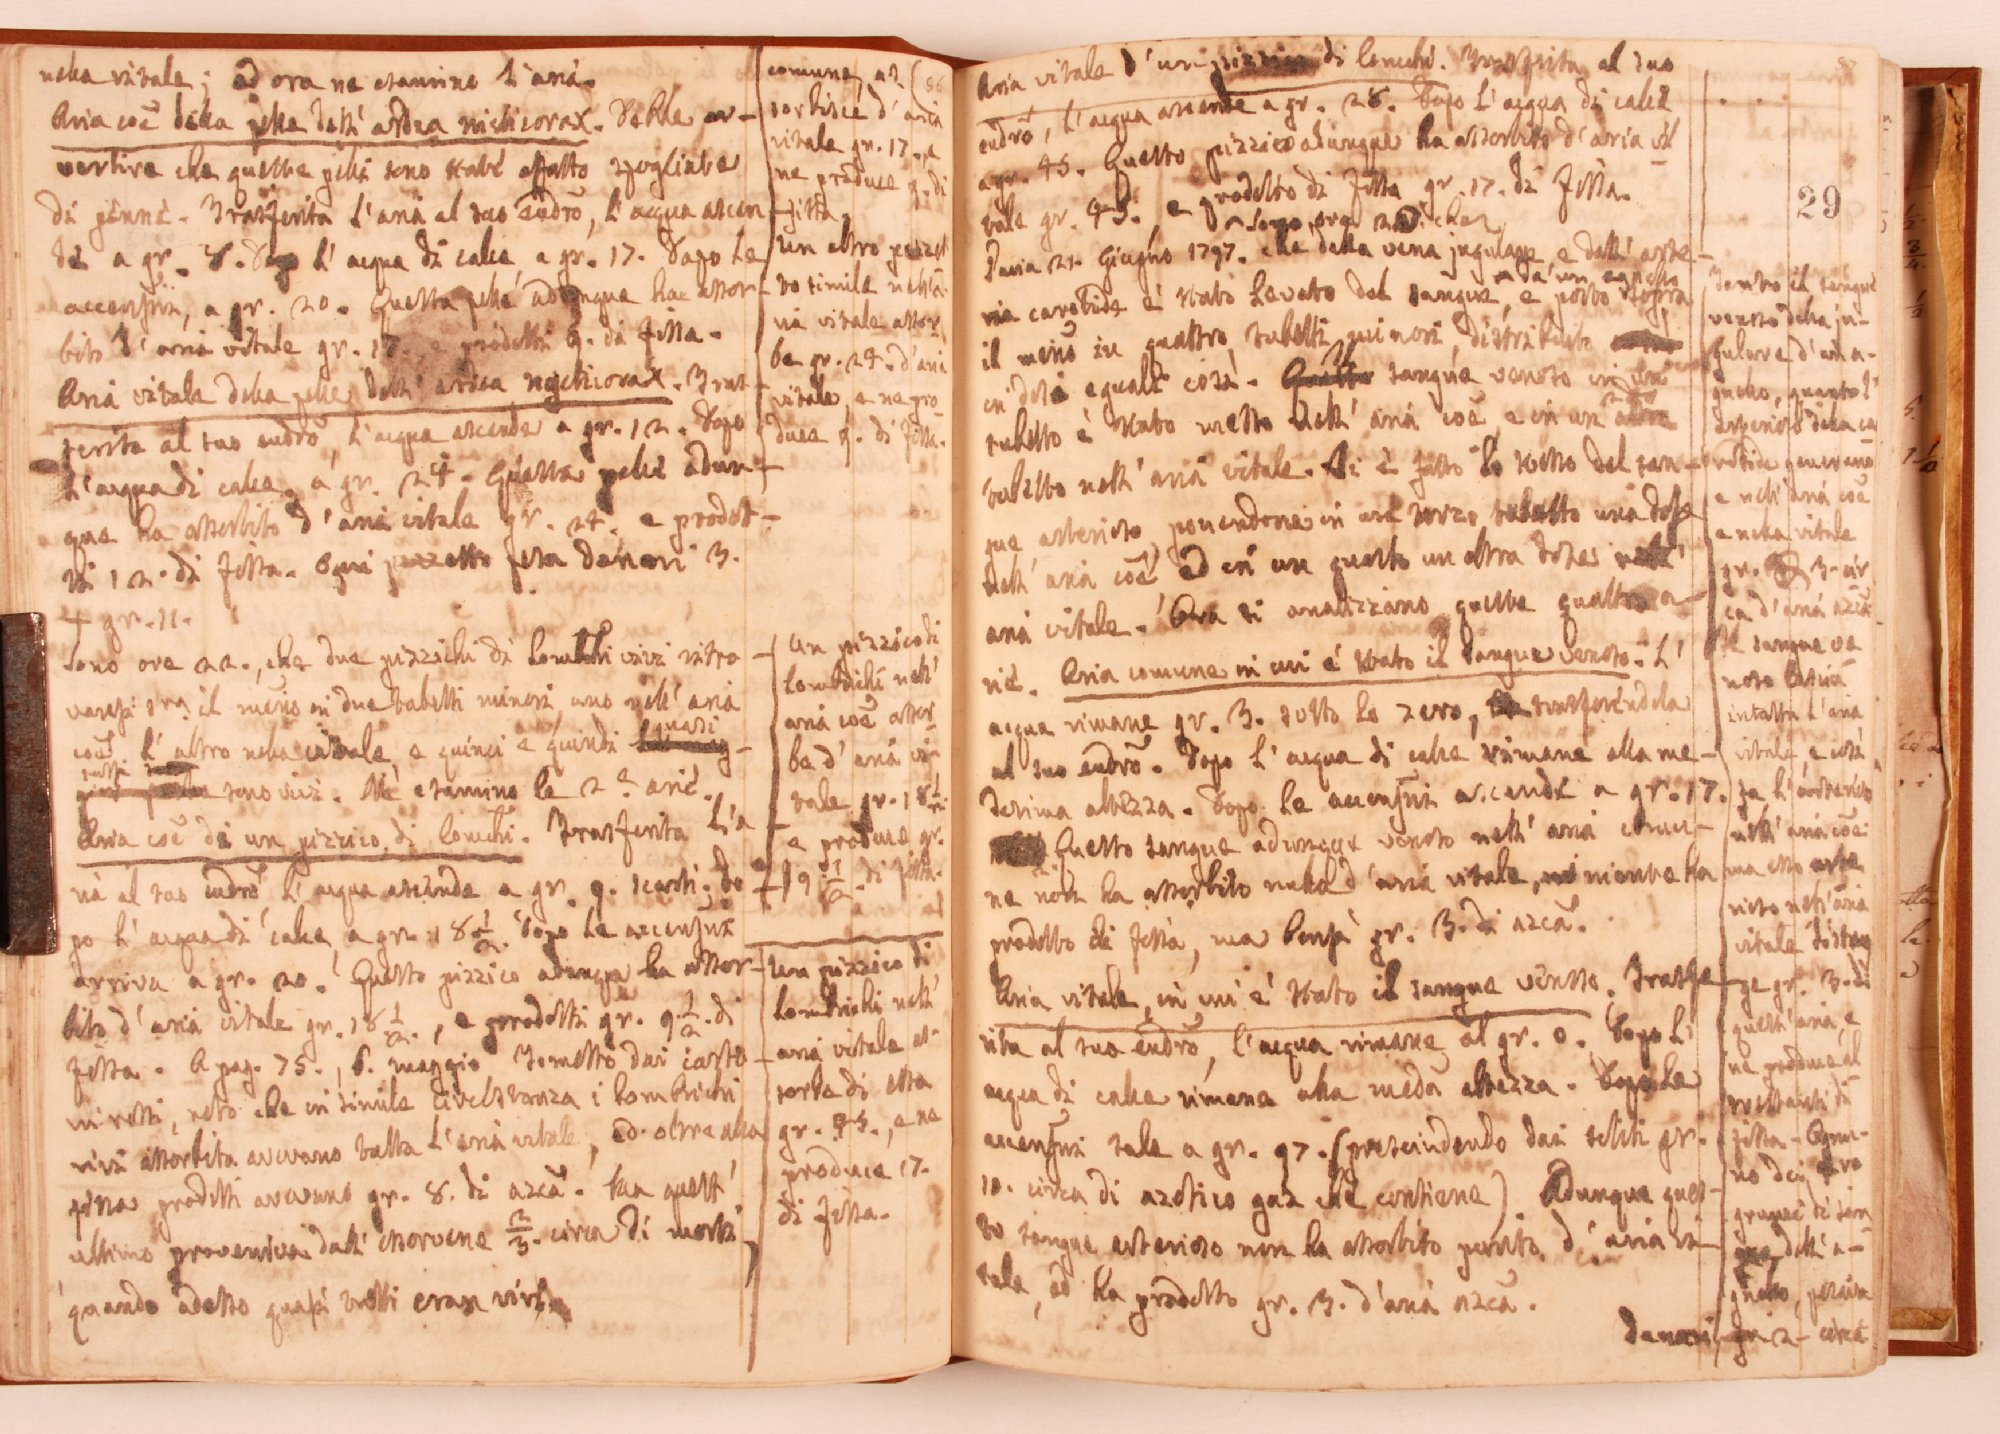 nella vitale; ed ora ne esamino l'aria.
Aria coē della pelle dell'ardea nicticorax. Debbo av-
vertire che queste pelli sono state affatto spogliate
di penne. Trasferita l'aria al suo eudrō, l'acqua ascen
de a gr. 8. Dopo l'acqua di calce a gr. 17. Dopo le
accensioni, a gr. 20. Questa pelle adunque ha assor-
bito d'aria vitale gr. 17. e prodotti 9. di fissa.
Aria vitale della pelle dell'ardea nycticorax. Tras-
ferita al suo eudrō, l'acqua ascende a gr. 12. Dopo
l'acqua di calce, a gr. 24. Questa pelle adun-
que ha assorbito d'aria vitale gr. 24. e prodot-
ti 12. di fissa. Ogni pezzetto pesa denari 3.
gr. 11.
Sono ore 22., che due pizzichi di lombrichi vivi ritro
vansi sul merc̄ in due tubetti minori uno nell'aria
coē, l'altro nella vitale, e quinci e quindi quasi
tutti sono vivi. Ne esamino le 2. arie.
Aria coē di un pizzico di lomchi. Trasferita l'a
ria al suo eudrō l'acqua ascende a gr. 9. scarsi. Do
po l'acqua di calce, a gr. 18 1/2. Dopo le accensioni
arriva a gr. 20. Questo pizzico adunque ha assor-
bito d'aria vitale gr. 18 1/2., e prodotti gr. 9 1/2. di
fissa. A pag. 75., 6. maggio
noto che in simile circostanza i lombrichi
vivi assorbita avevano tutta l'aria vitale, ed oltre alla
fissa prodotti avevano gr. 8. di azcā. Ma quest'
ultimo proveniva dall'esservene 2/3. circa di morti,
quando adesso quasi tutti eran vivi.
comune, as
sorbisce d'aria
vitale gr. 17., e
ne produce 9. di
fissa.
Un altro pezzet
to simile nell'a-
ria vitale assor
be gr. 24. d'aria
vitale, e ne pro
duce 9. di fissa.
Un pizzico di
lombrichi nell'
aria coē assor
be d'aria vi-
tale gr. 18 1/2
e produce gr.
9 1/2. di fissa.
Un pizzico di
lombrichi nell'
aria vitale as-
sorbe di essa
gr. 45., e ne
produce 17.
di fissa.
Aria vitale d'un pizzico di lomchi. Trasferita al suo
eudrō, l'acqua ascende a gr. 28. Dopo l'acqua di calce
a gr. 45. Questo pizzico adunque ha assorbito d'aria vi
tale gr. 45., e prodotto di fissa gr. 17. di fissa.
Sono ore
Pavia 21. Giugno 1797. che dalla vena jugulare e dall'arte-
ria carotide è stato levato del sangue, e posto sopra
da un agnello
il merc̄ in quattro tubetti minori distribuito
in dosi eguali così. sangue venoso in uno
tubetto è stato messo nell'aria coē, e in un altro
tubetto nell'aria vitale. Si è fatto lo stesso del san-
gue arterioso, ponendone in un terzo tubetto una dose
nell'aria coē ed in un quarto un'altra dose nell'
aria vitale. Ora si analizzano queste quattro a-
rie. Aria comune in cui è stato il sangue venoso. L'
acqua rimane gr. 3. sotto lo zero, trasferendola
al suo eudrō. Dopo l'acqua di calce rimane alla me-
desima altezza. Dopo le accensioni ascende a gr. 17.
Questo sangue adunque venoso nell'aria comu-
ne non ha assorbito nulla d'aria vitale, niente ha
prodotto di fissa, ma bensì gr. 3. di azcā.
Aria vitale, in cui è stato il sangue venoso. Trasfe
rita al suo eudrō, l'acqua rimane al gr. 0. Dopo l'
acqua di calce rimane alla medā altezza. Dopo le
accensioni sale a gr. 97. (prescindendo dai soliti gr.
10. circa di azotico gaz che contiene). Adunque ques-
to sangue arterioso non ha assorbito punto d'aria vi-
tale, ed ha prodotto gr. 3. d'aria azcā.
29
Tanto il sangue
venoso della ju-
gulare d'un a-
gnello, quanto l'
arterioso della ca
rotide generano
e nell'aria coē
e nella vitale
gr. 3. cir
ca d'aria azcā
Il sangue ve
noso lascia
intatta l'aria
vitale, e così
fa l'arterioso
nell'aria coē:
ma esso arte
rioso nell'aria
vitale distrug
ge gr. 3. di
quest'aria, e
ne produce al
trettanti di
fissa. Ognu-
no dei
grumi di san
gue dell'a-
gnello, pesava
denari, gr. 2. circa